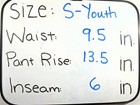 Size: S-Youth
Waist: 9.5 in
Pant Rise: 13.5 in
Inseam: 6 in